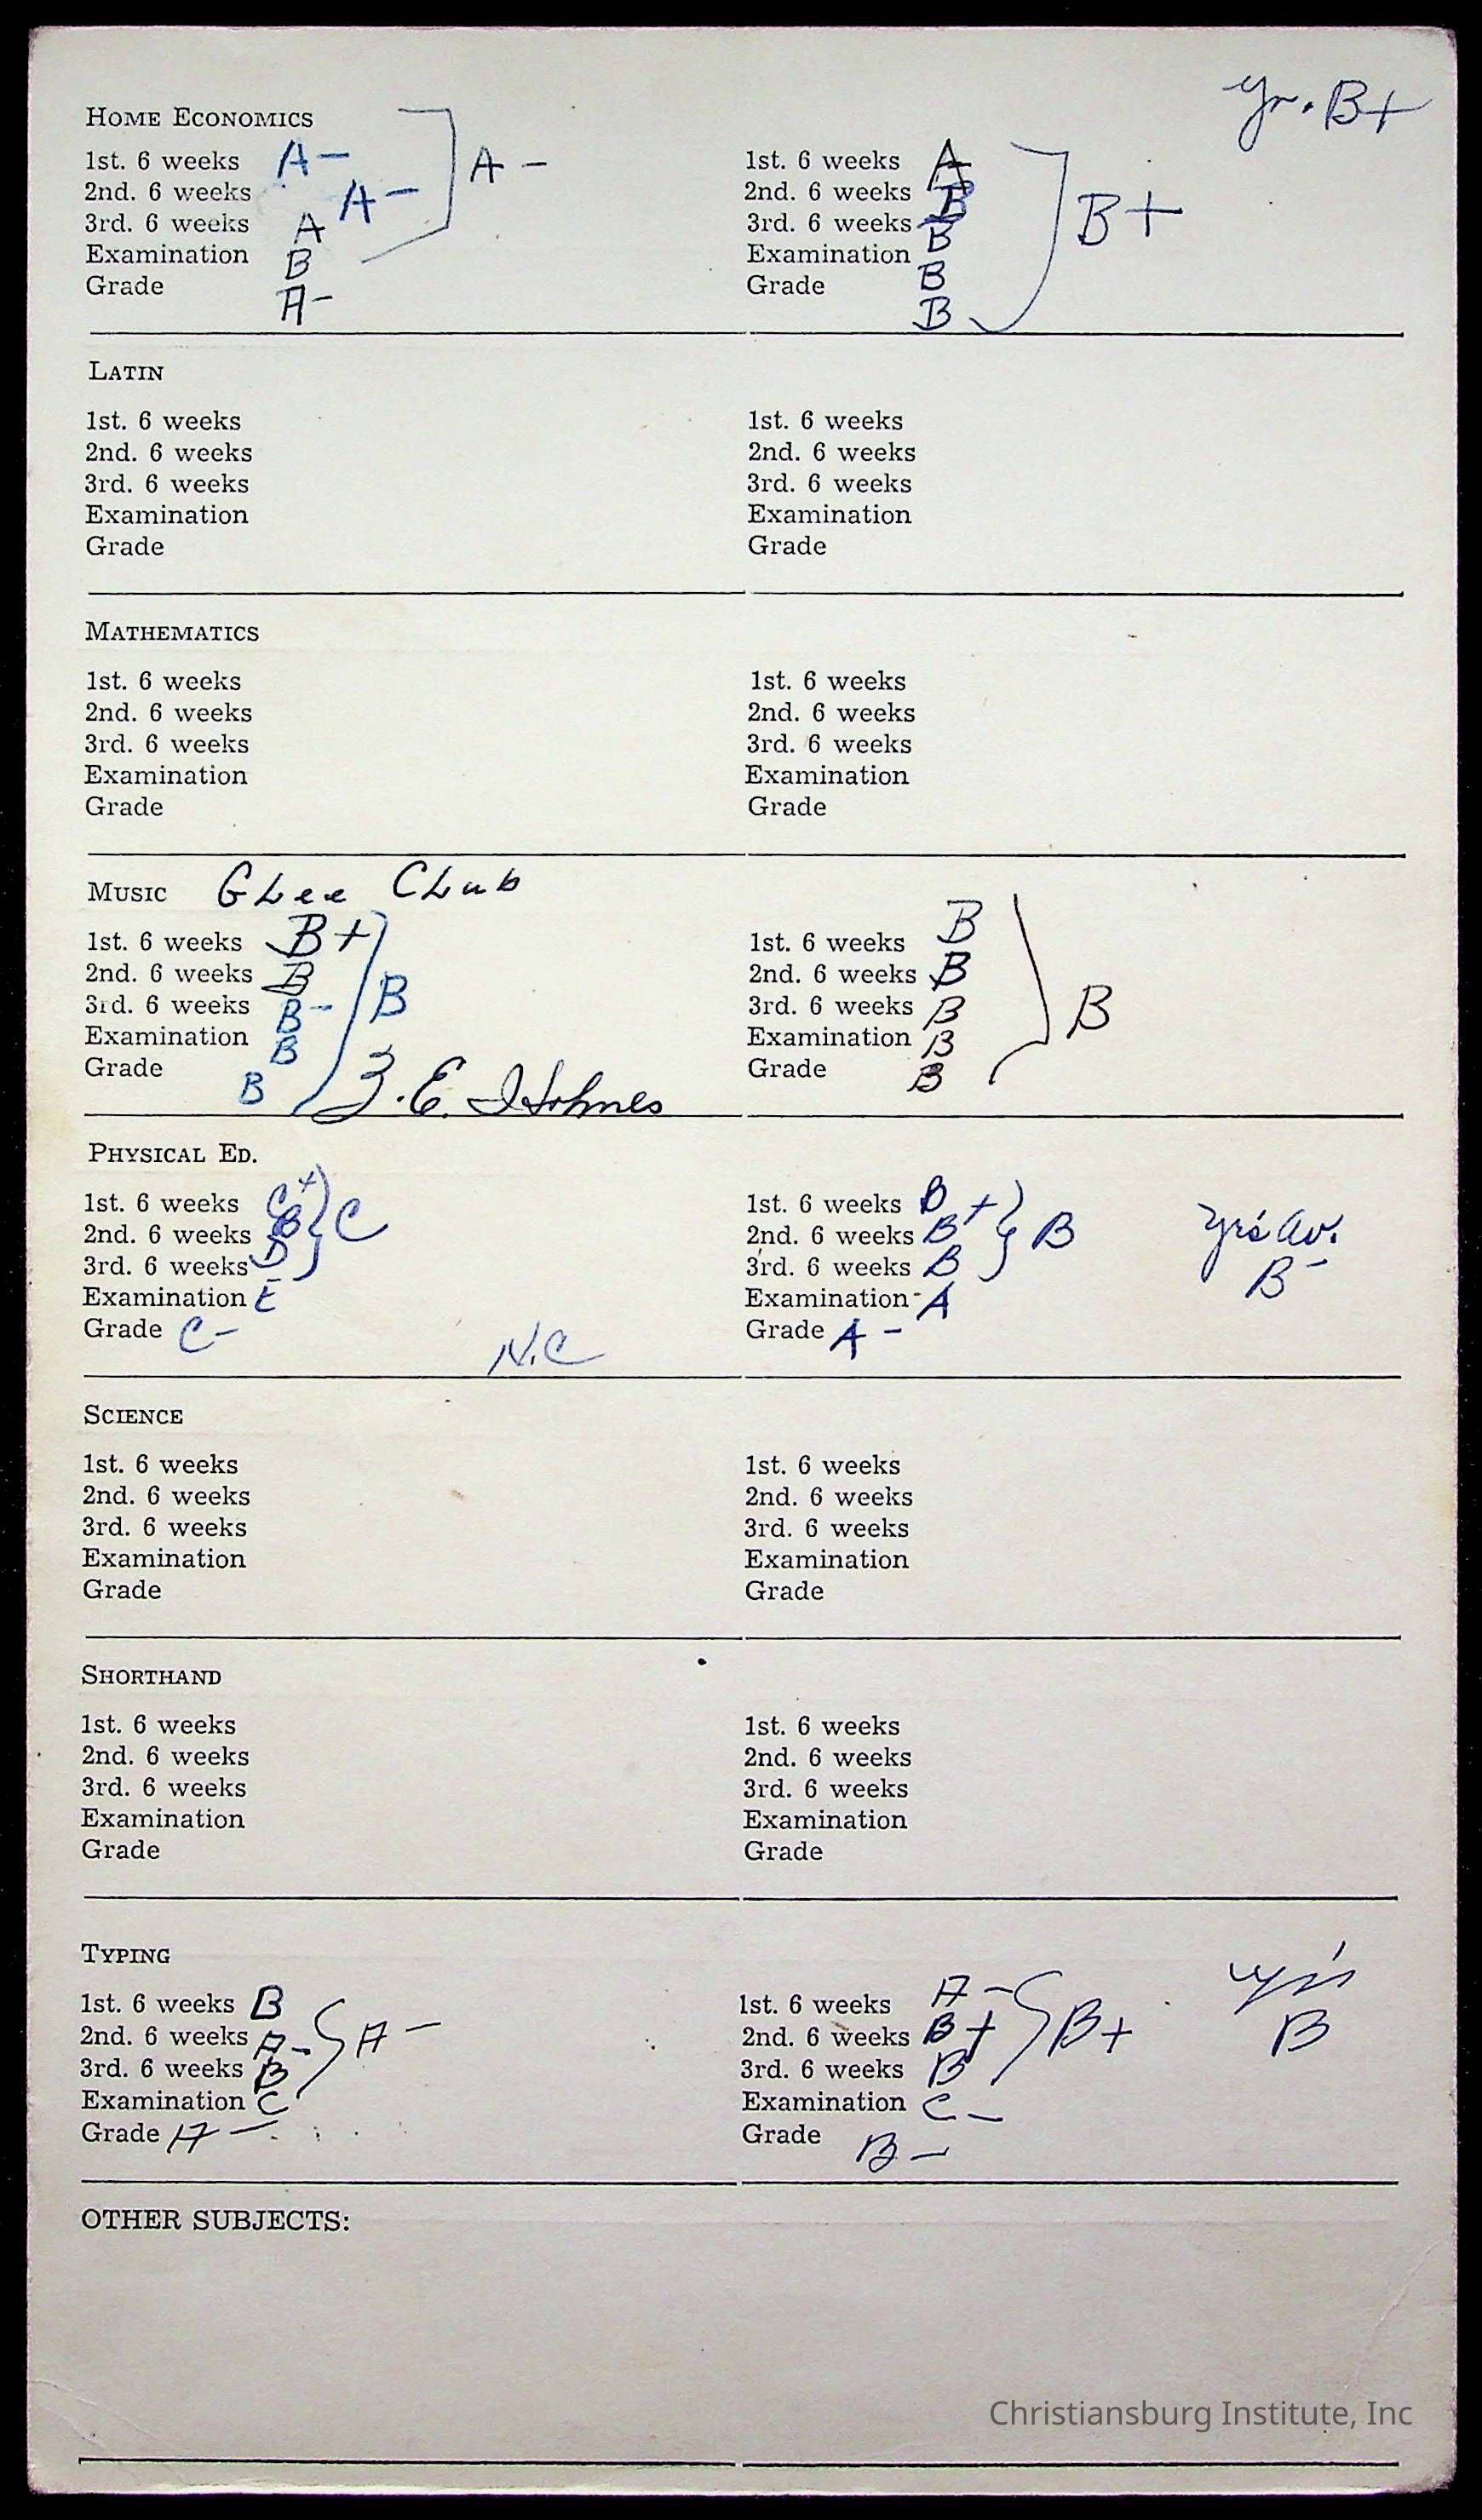 yr. B+
HOME ECONOMICS
1st. 6 weeks A-
2nd. 6 weeks A-
3rd. 6 weeks A
Examination B
Grade A-
A-
1st. 6 weeks A
2nd. 6 weeks B
3rd. 6 weeks B
Examination B
Grade B
B+
LATIN
1st. 6 weeks
2nd. 6 weeks
3rd. 6 weeks
Examination
Grade
1st. 6 weeks
2nd. 6 weeks
3rd. 6 weeks
Examination
Grade
MATHEMATICS
1st. 6 weeks
2nd. 6 weeks
3rd. 6 weeks
Examination
Grade
1st. 6 weeks
2nd. 6 weeks
3rd. 6 weeks
Examination
Grade
MUSIC Glee Club
1st. 6 weeks B+
2nd. 6 weeks B
3rd. 6 weeks B-
Examination B
Grade B
B
Z. E. Holmes
1st. 6 weeks B
2nd. 6 weeks B
3rd. 6 weeks B
Examination B
Grade B
B
PHYSICAL ED.
1st. 6 weeks C+
2nd. 6 weeks B
3rd. 6 weeks D
Examination E
Grade C-
C
N.C
1st. 6 weeks B
2nd. 6 weeks B+
3rd. 6 weeks B
Examination A
Grade A-
B
yr's av.
B-
SCIENCE
1st. 6 weeks
2nd. 6 weeks
3rd. 6 weeks
Examination
Grade
1st. 6 weeks
2nd. 6 weeks
3rd. 6 weeks
Examination
Grade
SHORTHAND
1st. 6 weeks
2nd. 6 weeks
3rd. 6 weeks
Examination
Grade
1st. 6 weeks
2nd. 6 weeks
3rd. 6 weeks
Examination
Grade
TYPING
1st. 6 weeks B
2nd. 6 weeks A-
3rd. 6 weeks B
Examination C
Grade A-
A-
1st. 6 weeks A-
2nd. 6 weeks B+
3rd. 6 weeks B
Examination C-
Grade B-
B+
yr's
B
OTHER SUBJECTS:
Christiansburg Institute, Inc